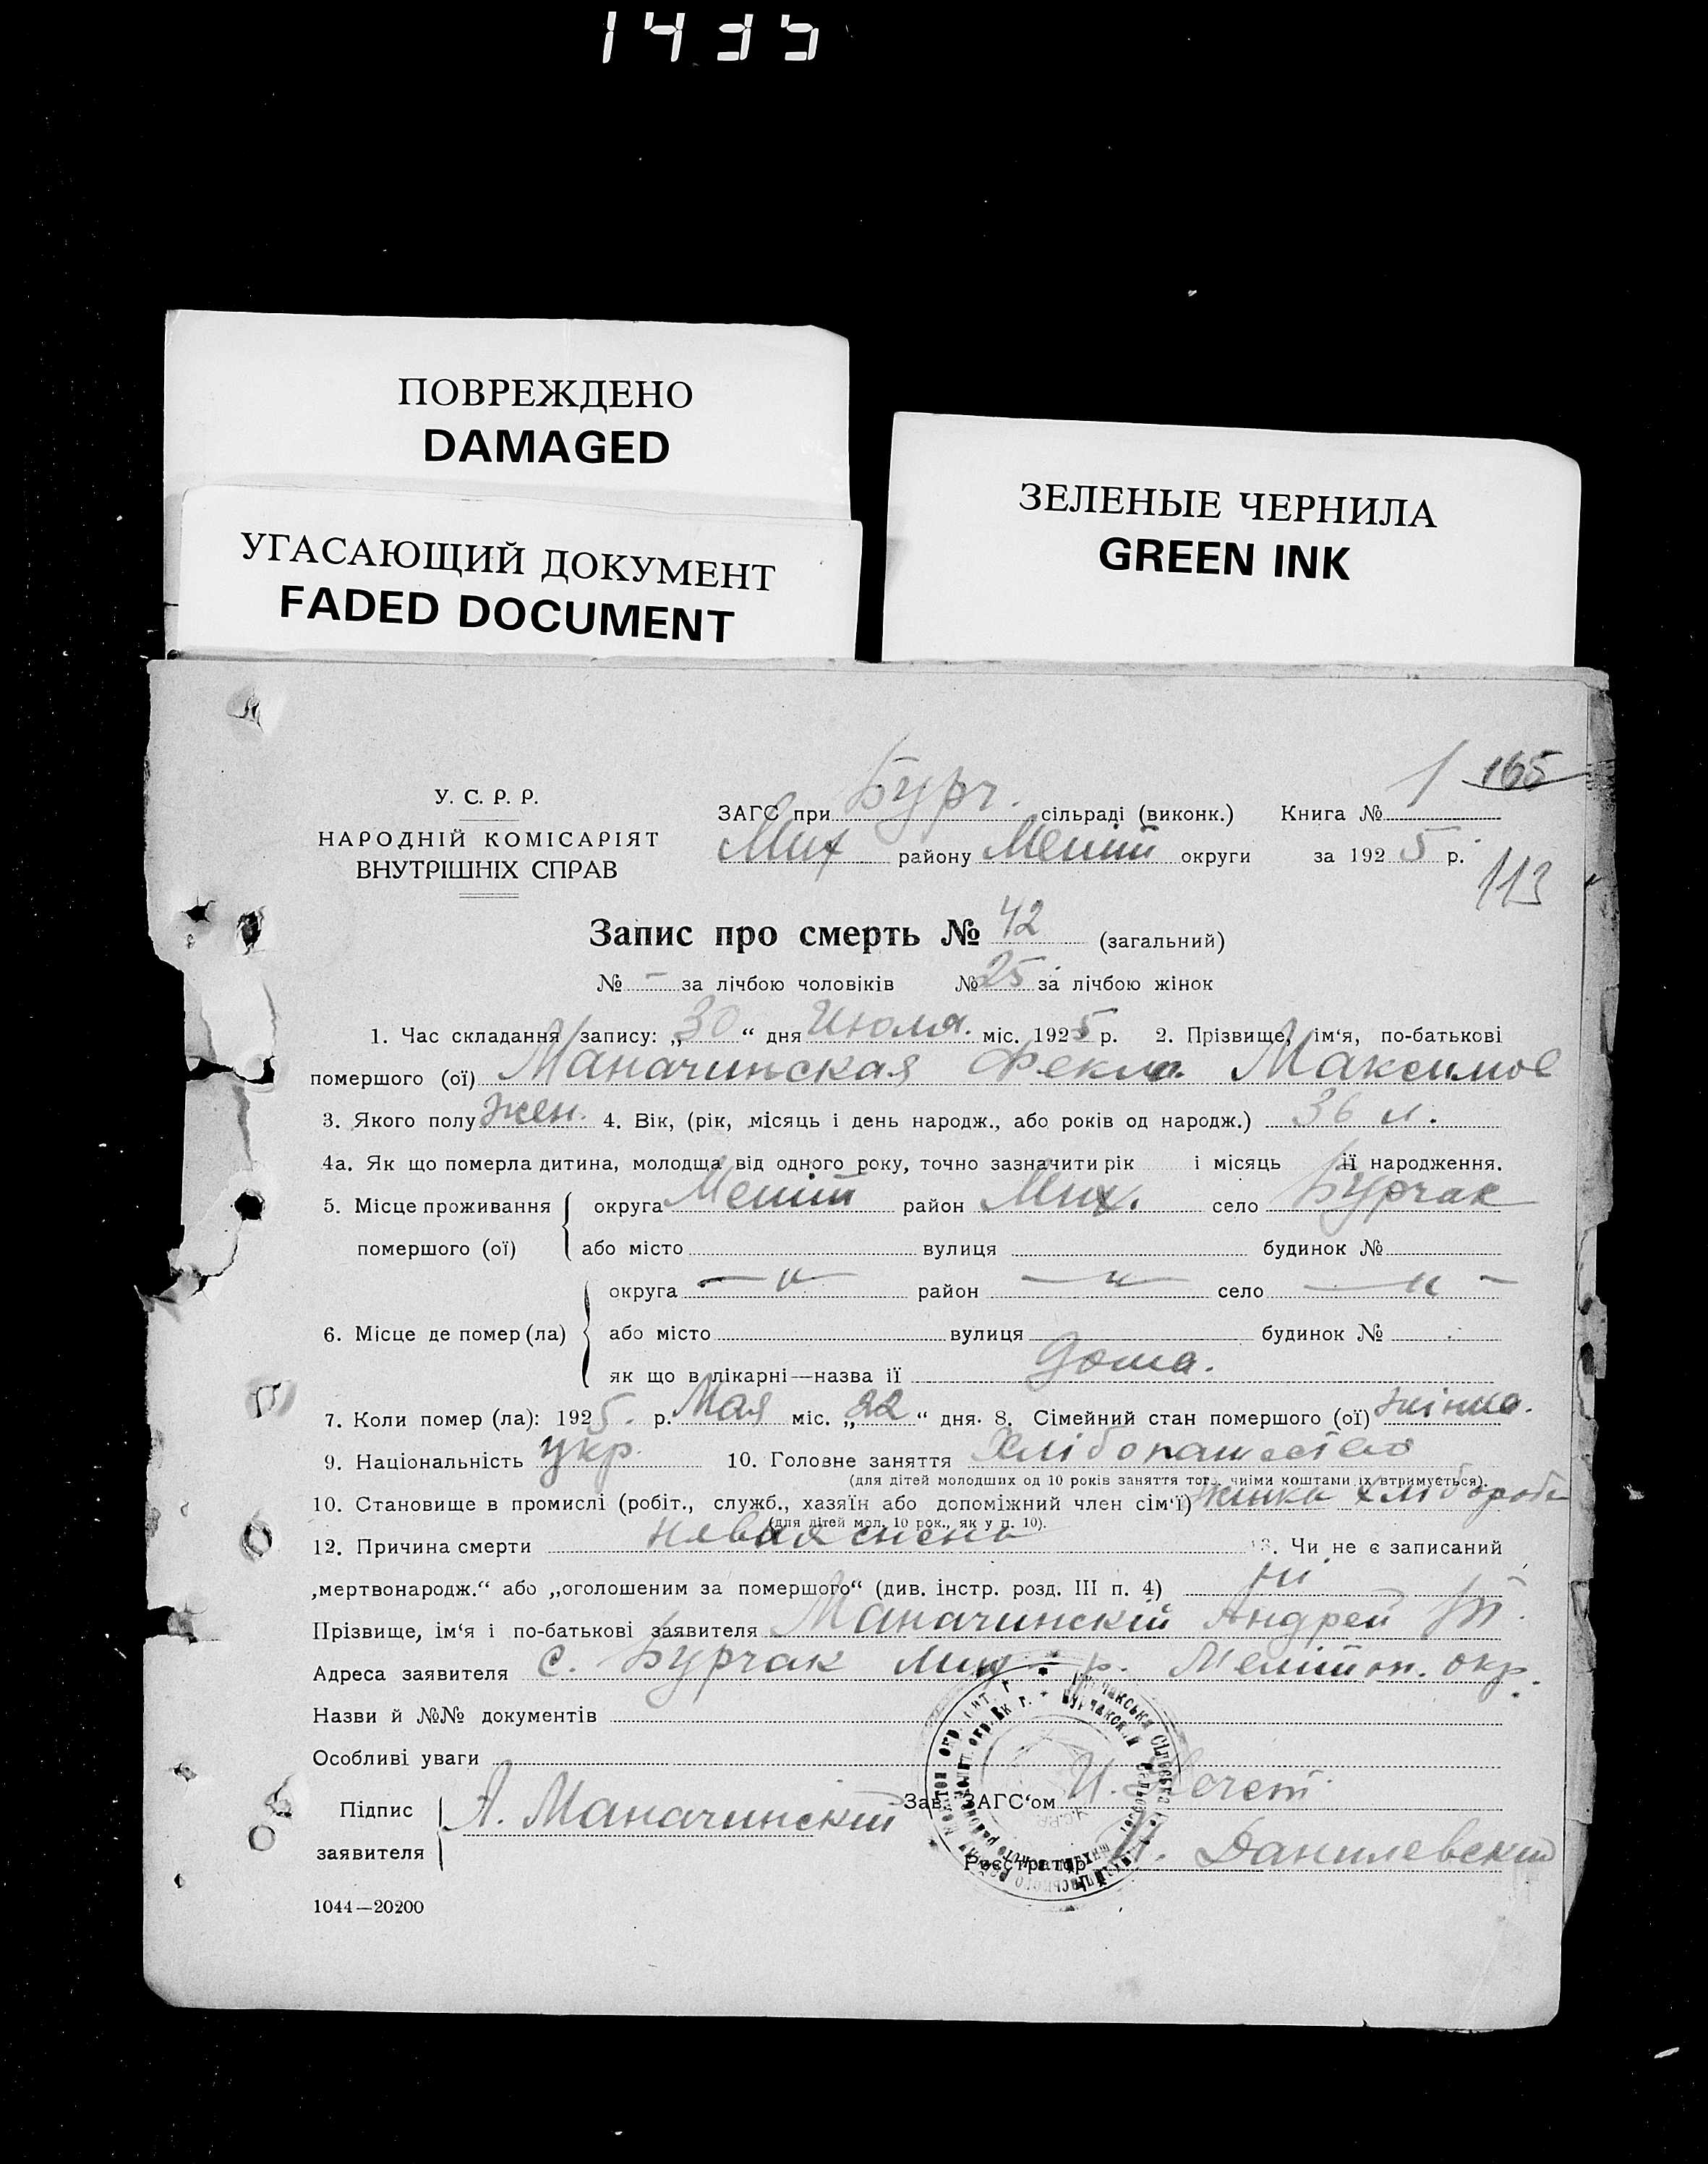 1435
ПОВРЕЖДЕНО
DAMAGED
УГАСАЮЩИЙ ДОКУМЕНТ
FADED DOCUMENT
ЗЕЛЕНЫЕ ЧЕРНИЛА
GREEN INK
165
У. С. Р. Р.
НАРОДНІЙ КОМІСАРІЯТ
ВНУТРІШНІХ СПРАВ
ЗАГС при Бурч. сільраді (виконк.) Книга № 1
Мих району Меліт округи за 1925 р.
113
Запис про смерть № 42 (загальний)
№ - за лічбою чоловіків № 25 за лічбою жінок
1. Час складання запису: „30“ дня Июля міс. 1925 р. 2. Прізвище, ім‘я, по-батькові
помершого (ої) Маначинская Фекла Максимов
3. Якого полу жен. 4. Вік, (рік, місяць і день народж., або років од народж.) 36 л.
4а. Як що померла дитина, молодща від одного року, точно зазначити рік і місяць її народження.
5. Місце проживання округа Меліт район Мих. село Бурчак
помершого (ої) або місто вулиця будинок №
округа — „ — район — „ — село — „ —
6. Місце де помер (ла) або місто вулиця будинок №
як що в лікарні—назва ії дома.
7. Коли помер (ла): 1925. р. Мая міс. „22“ дня. 8. Сімейний стан помершого (ої) жінка.
9. Національність укр. 10. Головне заняття Хлібопашество
(для дітей молодших од 10 років заняття того, чиїми коштами їх втримується).
10. Становище в промислі (робіт., служб., хазяїн або допоміжний член сім‘ї) жинка хлібороба
(для дітей мол. 10 рок., як у п. 10).
12. Причина смерти 13. Чи не є записаний
„мертвонародж.“ або „оголошеним за помершого“ (див. інстр. розд. III п. 4) ні
Прізвище, ім‘я і по-батькові заявителя Маначинский Андрей
Адреса заявителя с. Бурчак Мих р. Мелітоп. окр.
Назви й №№ документів
Особливі уваги
Підпис заявителя А. Маначинский
Зав. ЗАГС‘ом
Реєстратор Данилевский
1044—20200